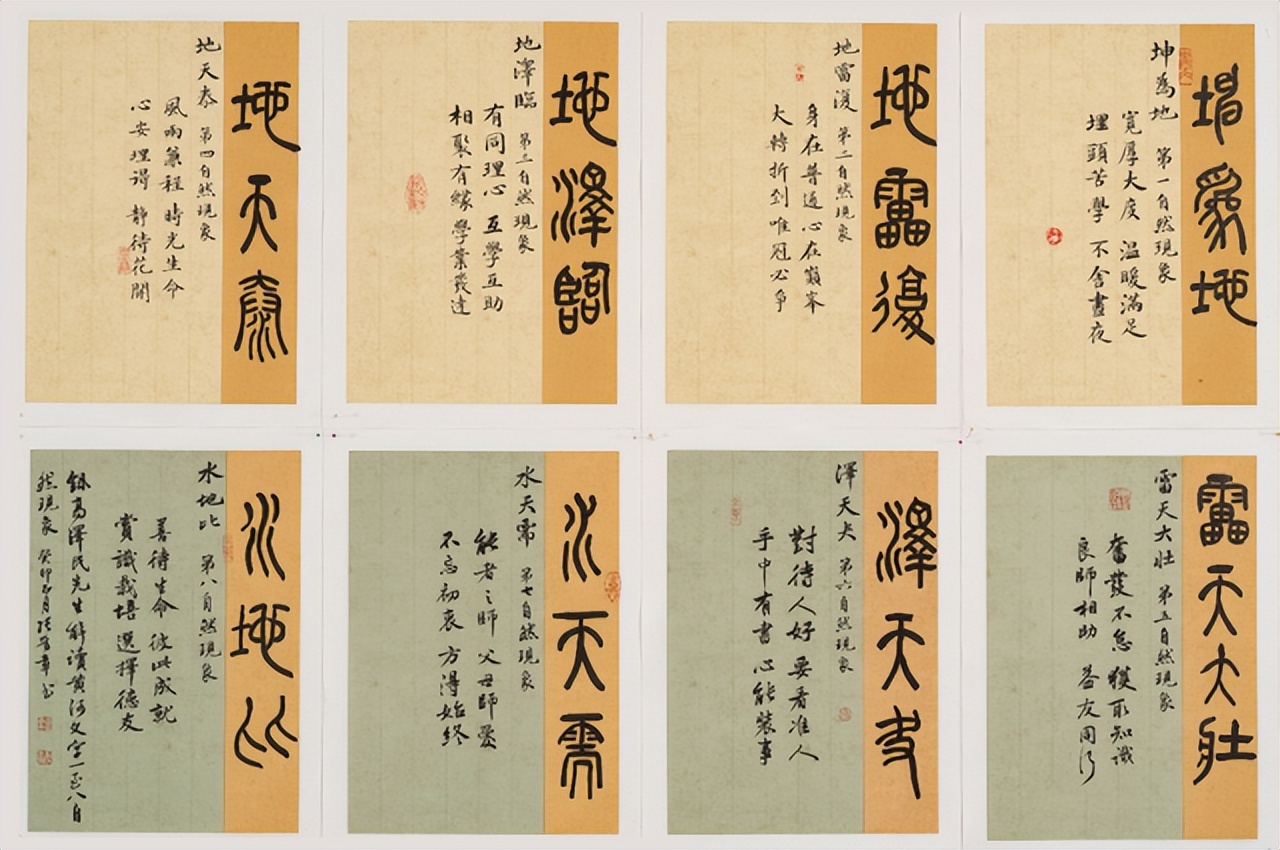 坤為地
坤為地 第一自然現象
寬厚大度 溫暖滿足
埋頭苦學 不舍晝夜
地雷復
地雷復 第二自然現象
身在普通 心在巔峯
大轉折到 唯冠必爭
地澤臨
地澤臨 第三自然現象
有同理心 互學互助
相聚有緣 學業發達
地天泰
地天泰 第四自然現象
風雨兼程 時光生命
心安理得 靜待花開
雷天大壯
雷天大壯 第五自然現象
奮發不怠 獲取知識
良師相助 益友同行
澤天夬
澤天夬 第六自然現象
對待人好 要看准人
手中有書 心能裝事
水天需
水天需 第七自然現象
能者之師 父母師愛
不忘初衷 方得始終
水地比
水地比 第八自然現象
善待生命 彼此成就
賞識栽培 選擇德友
錄高澤民先生解讀黃河文字一至八自
然現象 癸卯